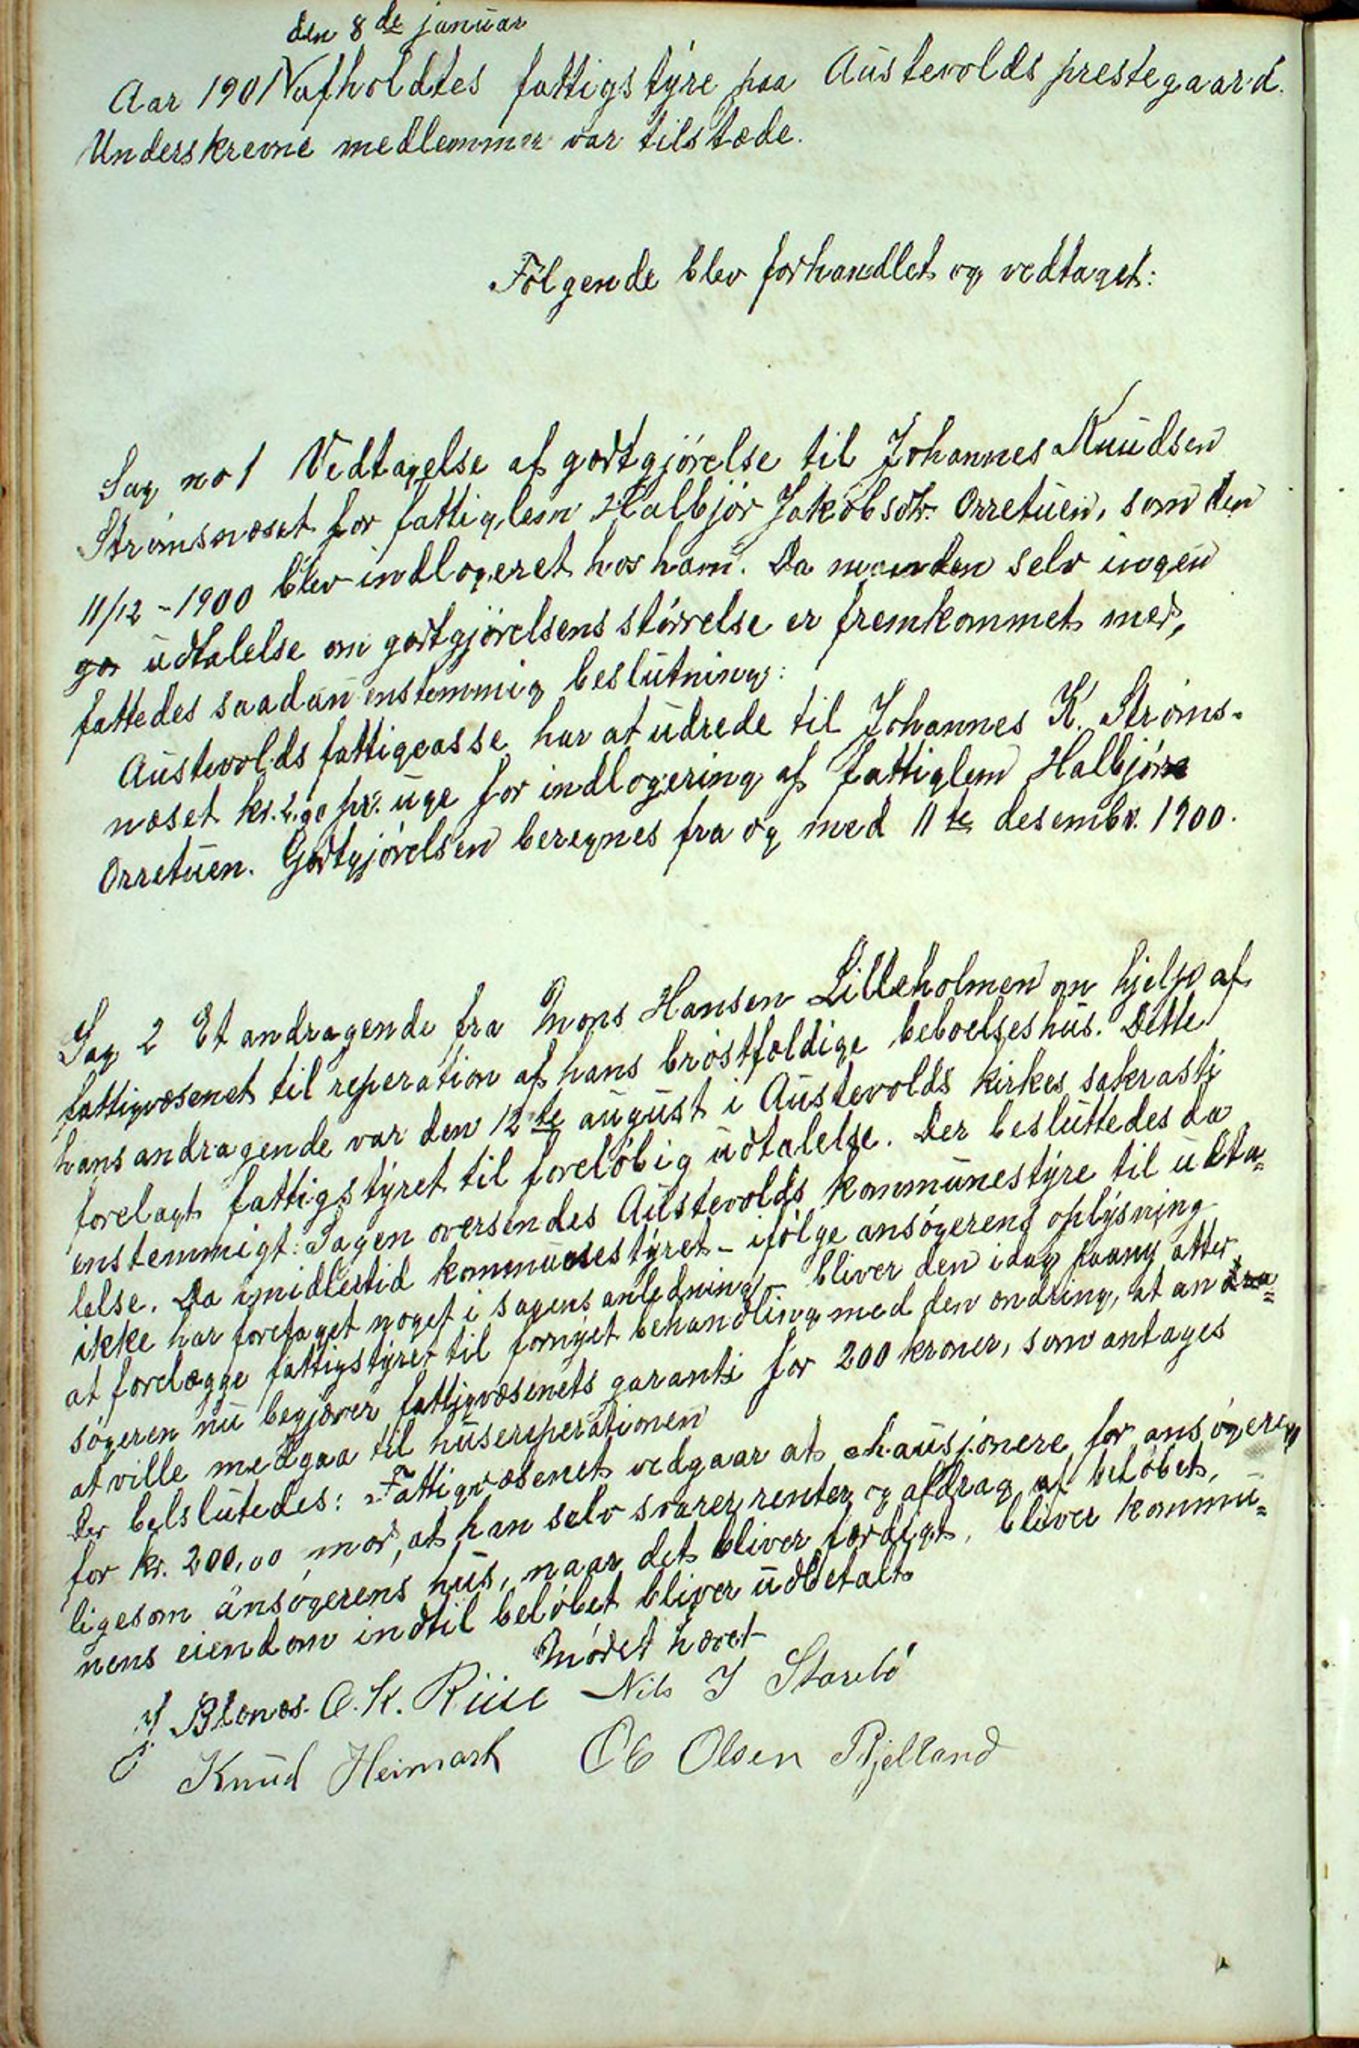 den 8de januar
Aar 1901 afholdtes fattigstyre paa Austevolds prestegaard.
Underskrevne medlemmer var tilstæde.
Følgende blev forhandlet og vedtaget:
Sag no 1 Vedtagelse af godtgjørelse til Johannes Knudsen
Strømsnæset for fattiglem Halbjør Jakobsdtr. Orretuen, som den
11/12 - 1900 blev indlogeret hos ham. Da manden selv ingen
udtalelse om godtgjørelsens størrelse er fremkommet med,
fattedes saadan enstemmig beslutning:
Austevolds fattigcasse har at udrede til Johannes K. Strøms-
næset kr. 2,90 pr. uge for indlogering af fattiglem Halbjør
Orretuen. Godtgjørelsen beregnes fra og med 11te desembr. 1900.
Sag 2 Et andragende fra Mons Hansen Lilleholmen om hjelp af
fattigvæsenet til reperation af hans brøstfældige beboelseshus. Dette
hans andragende var den 12te august i Austevolds kirkes sakrasti
forelagt fattigstyret til foreløbig udtalelse. Der besluttedes da
enstemmigt: Sagen oversendes Austevolds kommunestyre til udta=
lelse. Da imidlertid kommunestyret - ifølge ansøgerens oplysning
ikke har foretaget noget i sagens anledning - bliver den idag paany atter
at forelægge fattigstyret til fornyet behandling med den ændring, at an
søgeren nu begjærer fattigvæsenets garanti for 200 kroner, som antages
at ville medgaa til husereperationen
Der belslutedes: Fattigvæsenet vedgaar at chausjonere for ansøgeren
for kr. 200,00 mod, at han selv svarer renter og afdrag af beløbet,
ligesom ansøgerens hus, naar det bliver færdigt, bliver kommu=
nens eiendom indtil beløbet bliver udbetalt
Mødet hævet
Blænes. O. K. Riise Nils J Storebø
Knud Heimark Ole Olsen Bjelland